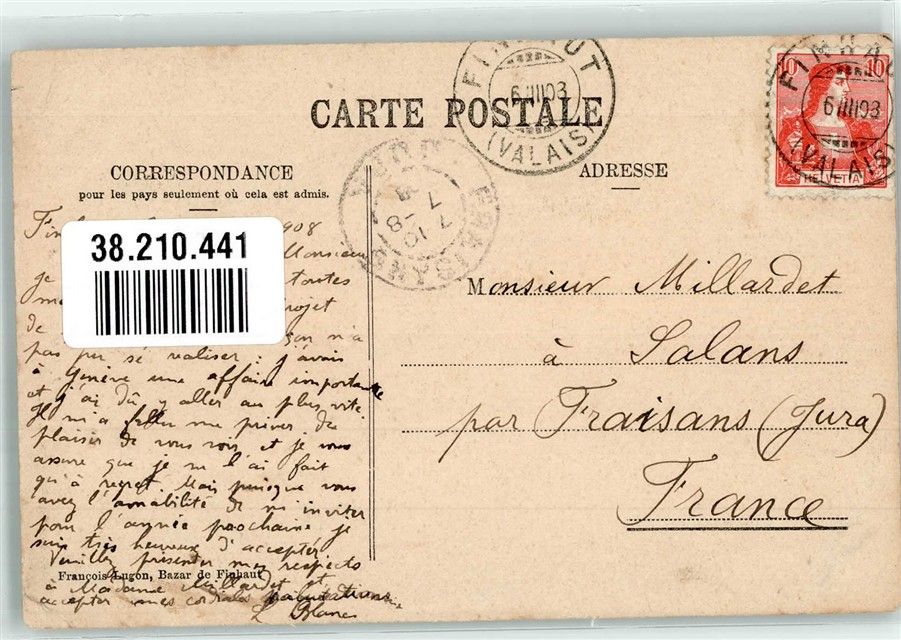 CARTE POSTALE
FINHAUT
6 III 09 3
(VALAIS)
10 10
HELVETIA
FINHAU
6 III 09 3
(VALAIS)
CORRESPONDANCE
pour les pays seulement où cela est admis.
ADRESSE
JURA
FRAISANS
7 - 8
10
38.210.441
Fin 1908
Monsieur
je toutes
projet
de n'a
pas pu se realiser : j'avais
à Genève une affaire importante
et j'ai dû y aller au plus vite
Il m'a fallu me priver du
plaisir de vous voir et je vous
assure que je ne l'ai fait
qu'à regret. Mais puisque vous
avez l'amabilité de m'inviter
pour l'année prochaine je
suis très heureux d'accepter
Veuillez présenter mes respects
à Madame Millardet et
accepter mes cordiales salutations
L Blanc
François Lugon, Bazar de Finhaut
Monsieur Millardet
à Salans
par Fraisans (Jura)
France